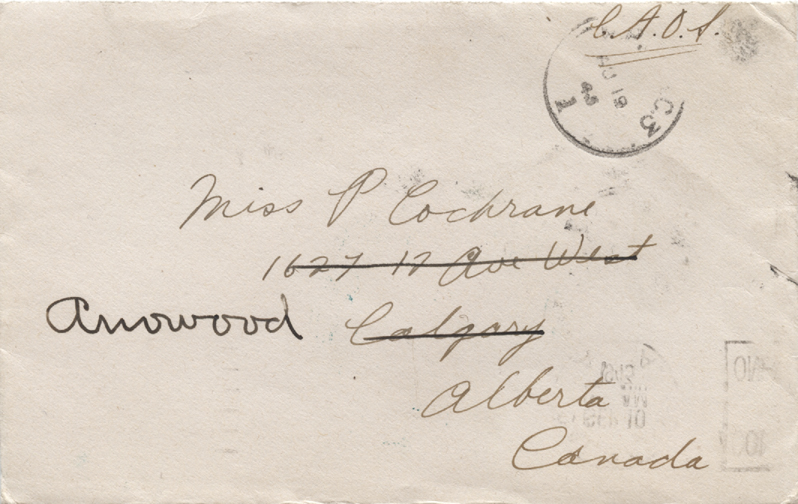 C.A.O.S.
C.3
19
1
Miss P Cochrane
1627 12 Ave West
Arrowwood Calgary
Alberta
Canada